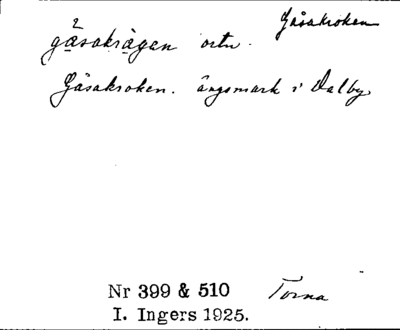 Gåsakroken
gǻsakrågan ortn.
Gåsakroken. ängsmark i Dalby
Nr 399 & 510
I. Ingers 1925.
Torna